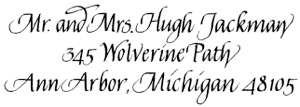 Mr. and Mrs. Hugh Jackman
345 Wolverine Path
Ann Arbor, Michigan 48105